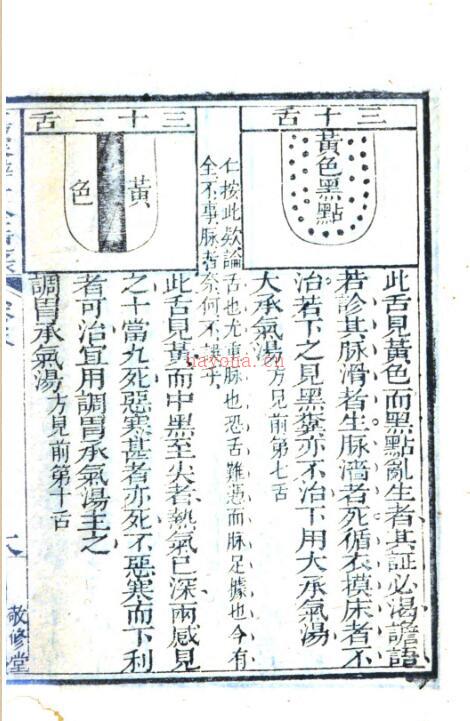 三十舌
黃色黑點
此舌見黃色而黑點亂生者其証必渴譫語
若診其脉滑者生脉濇者死循衣摸床者不
治若下之見黑糞亦不治下用大承氣湯
大承氣湯方見前第七舌
仁按此欵論舌也尤重脉也恐舌難憑而脉足據也今有
全不事脉者奈何不
三十一舌
黃色
此舌見黃而中黑至尖者熱氣已深兩感見
之十當九死惡寒甚者亦死不惡寒而下利
者可治宜用調胃承氣湯主之
調胃承氣湯方見前第十舌
敬修堂
hayona.cn